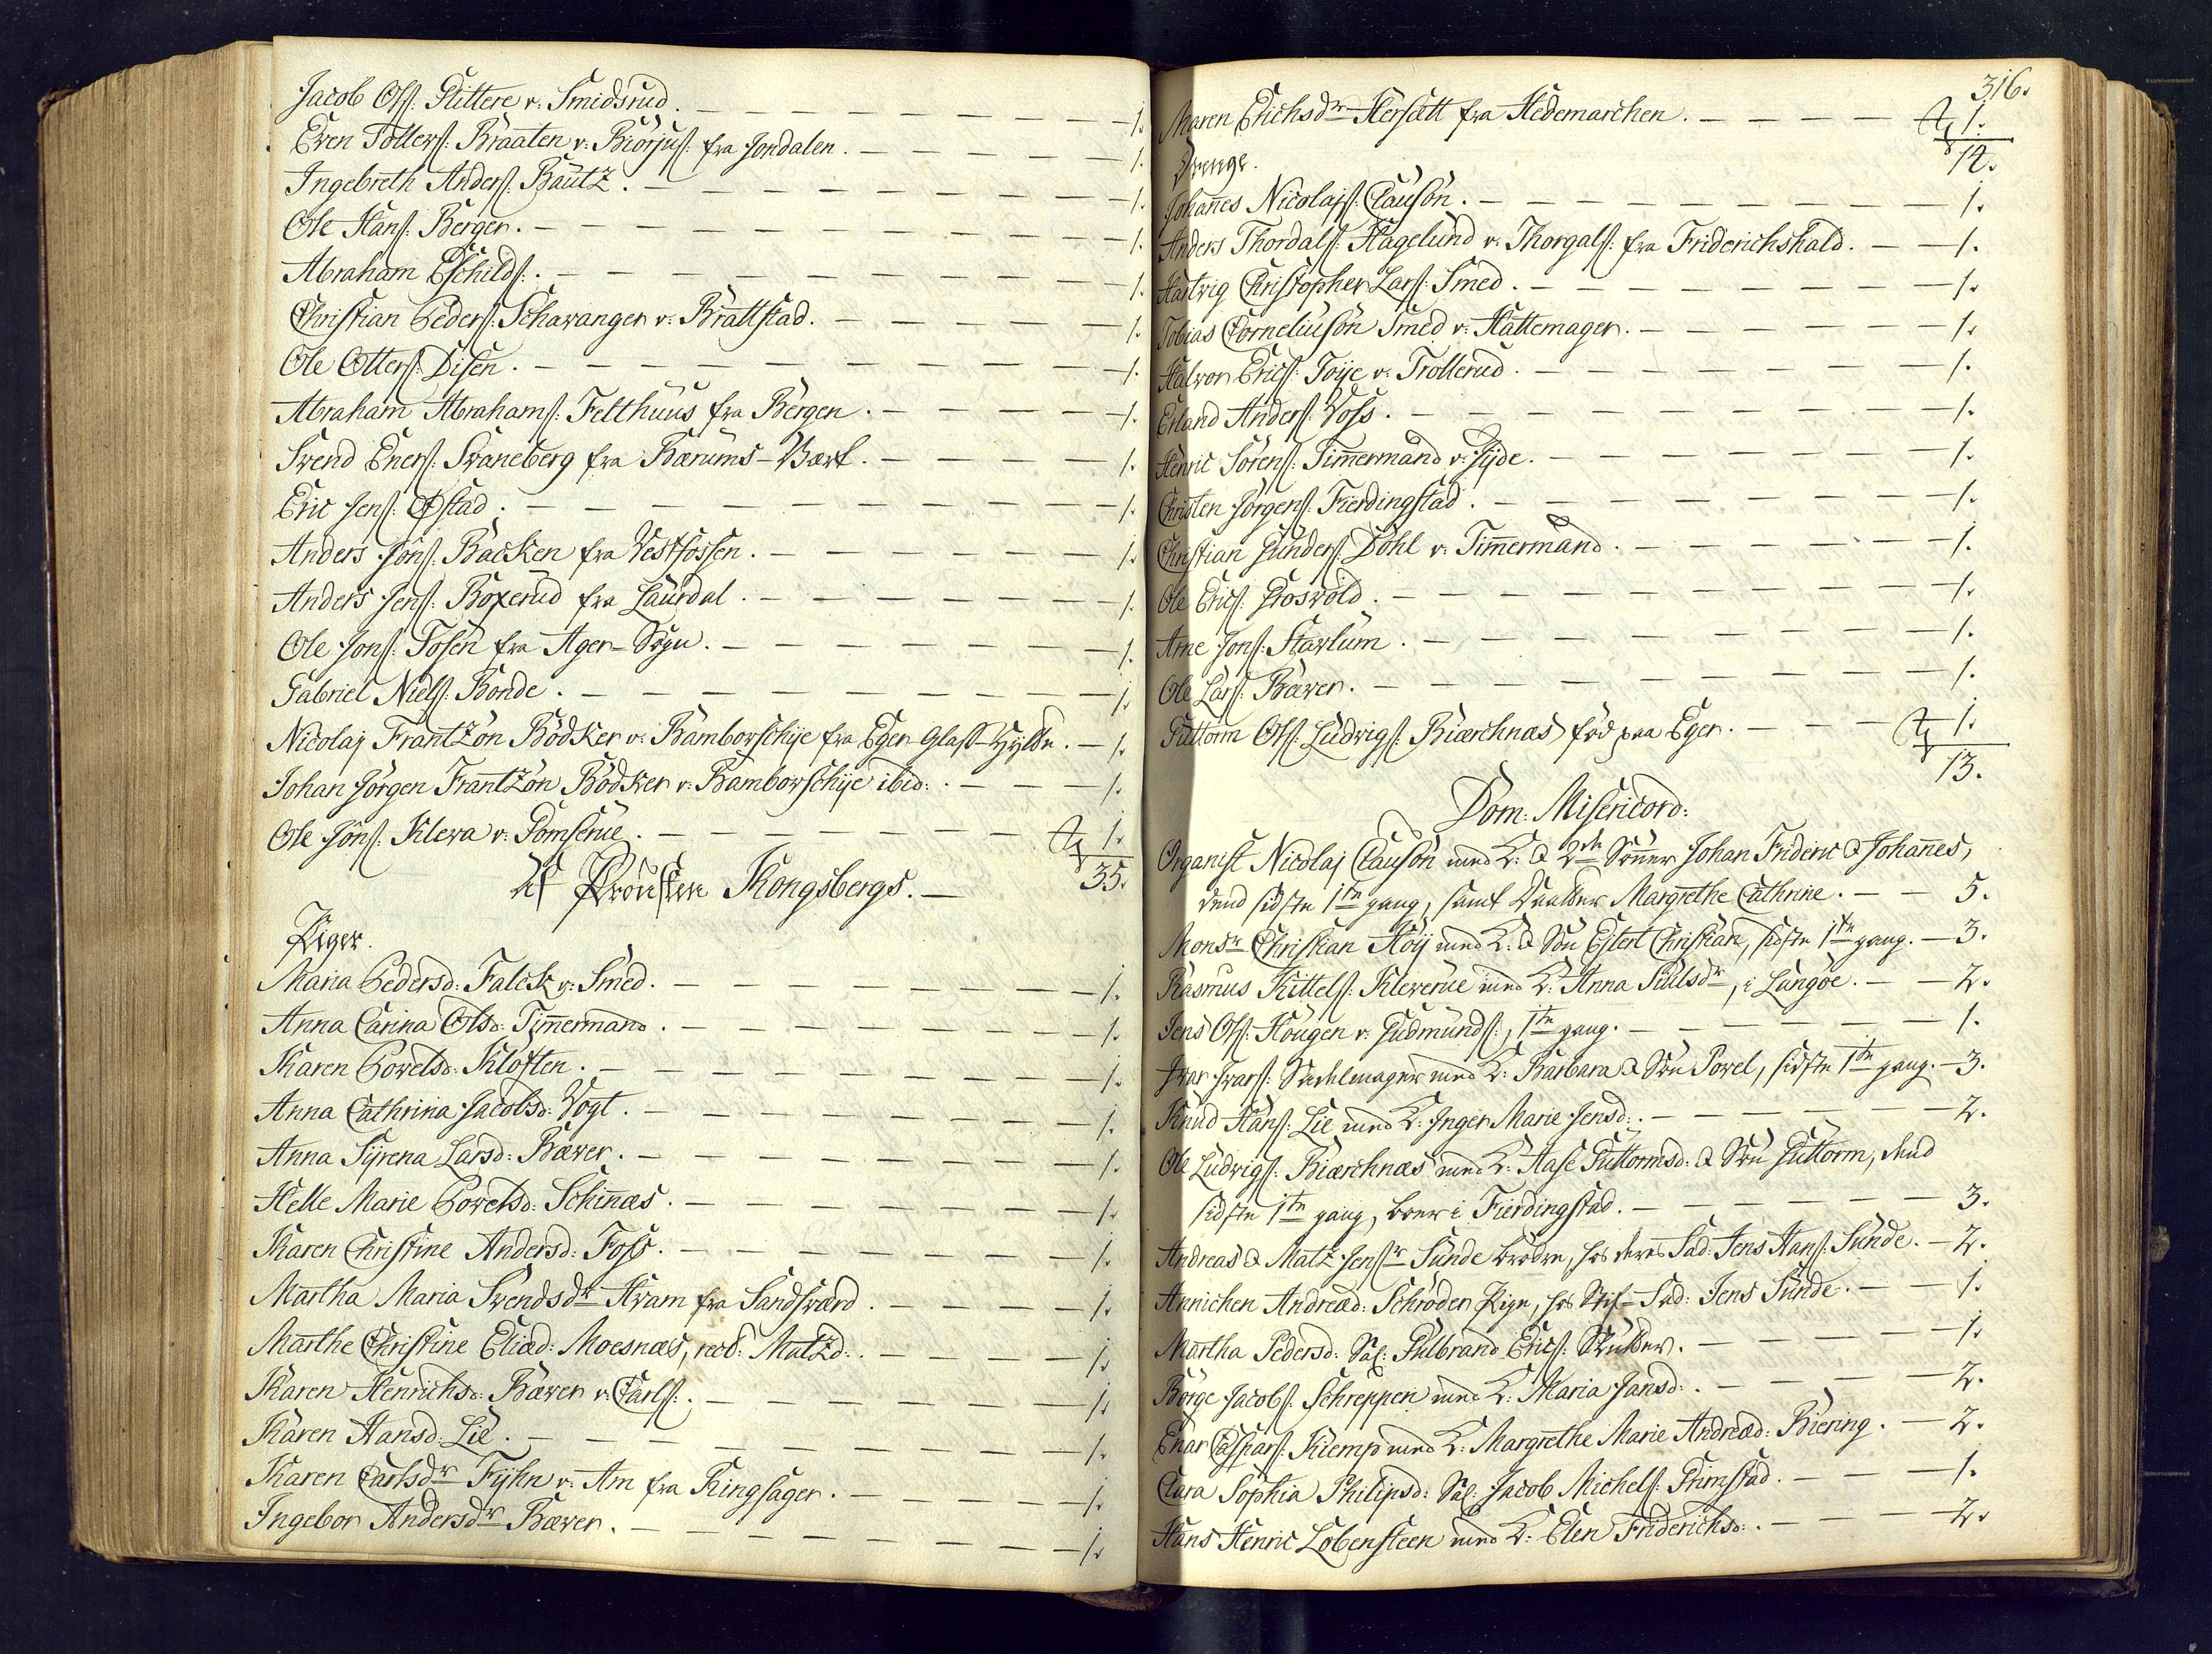 Jacob Ols: Plittere v: Smidsrud. 1.
Even Tollers: Braaten v: Biörjus: fra Jondalen. 1.
Ingebreth Anders: Bautz. 1.
Ole Hans: Berger. 1.
Abraham Eschilds: 1.
Christian Peders: Schavanger v: Brattstad. 1.
Ole Otters: Disen. 1.
Abraham Abrahams: Felthuus fra Bergen. 1.
Svend Eners: Svaneberg fra Bærums-Værk. 1.
Eric Jens: Østad. 1.
Anders Jons: Backen fra Vestfossen. 1.
Anders Jens: Boxerud fra Laurdal. 1.
Ole Jons: Tosen fra Ager-Sogn. 1.
Gabriel Niels: Bonde. 1.
Nicolaj Frantzøn Bödker v: Bamborschije fra Eger Glass-Hytte. 1.
Johan Jörgen Frantzøn Bödker v: Bamborschije ibid: 1.
Ole Jöns: Kleva v: Gomserue. 1.
35.
Af Prousten Kongsbergs.
Piger.
Maria Pedersd: Falck v: Smed. 1.
Anna Carina Olsd: Timmermand. 1.
Karen Povelsd: Klöften. 1.
Anna Cathrina Jacobsd: Vogt. 1.
Anna Syrena Larsd: Bæver. 1.
Helle Marie Povelsd: Schinnæs. 1.
Karen Christine Andersd: Foss. 1.
Martha Maria Svendsdr Hvam fra Sandsværd. 1.
Marthe Christine Eliæd: Moesnæs, rect: Matzd: 1.
Karen Henrichsd: Bæver v: Carls: 1.
Karen Hansd: Lie. 1.
Karen Carlsdr Fyhn v: Am fra Ringsager. 1.
Ingebor Andersdr Bæver. 1.
316.
Maren Erichsdr Hersætt fra Hedemarchen. 1.
14.
Drenge.
Johannes Nicolajs: Clausön. 1.
Anders Thordals: Hagelund v: Thorgals: fra Friderichshald. 1.
Hartvig Christopher Lars: Smed. 1.
Tobias Corneliusön Smed v: Hattemager. 1.
Halvor Erics: Toije v: Trollerud. 1.
Erland Anders: Voss. 1.
Henric Sörens: Timmermand v: Hyde. 1.
Christen Jörgens: Fierdingstad. 1.
Christian Gunders: Dohl v: Timmermand. 1.
Ole Erics: Grosvold. 1.
Arne Jons: Starlum. 1.
Ole Lars: Bæver. 1.
Guttorm Ols: Ludvigs: Biærchnæs föd paa Eger. 1.
13.
Dom: Misericord:
Organist Nicolaj Clausön med K: & 2de Sönner Johan Frideric & Johannes,
dend sidste 1te gang, samt Daatter Margrethe Cathrine. 5.
Monsr Christian Höij med K: & Sön Eistert Christian, sidste 1te gang. 3.
Rasmus Kittels: Kleverue med K: Anna Pulsdr, i Langöe. 2.
Jens Ols: Hougen v: Gudmunds:, 1te gang. 1.
Ivar Ivars: Sadelmager med K: Barbara & Sön Povel, sidste 1te gang. 3.
Knud Hans: Lie med K: Inger Marie Jensd: 2.
Ole Ludvigs: Biærchnæs med K: Aase Guttormsd: & Sön Guttorm, dend
sidste 1te gang, boer i Fierdingstad. 3.
Andreas & Matz Jenssr Sunde brödre, hos deres Fad: Jens Hans: Sunde. 2.
Annichen Andreæd: Schröder Pige, hos Stif-Fad: Jens Sunde. 1.
Martha Pedersd: Sal: Gulbrand Erics: Skutter. 1.
Börge Jacobs: Schreppen med K: Maria Jansd: 2.
Enar Caspars: Kiemp med K: Margrethe Marie Andreæd: Biering. 2.
Clara Sophia Philipsd: Sal: Jacob Michels: Grimstad. 1.
Hans Henric Lobensteen med K: Elen Friderichsd: 2.